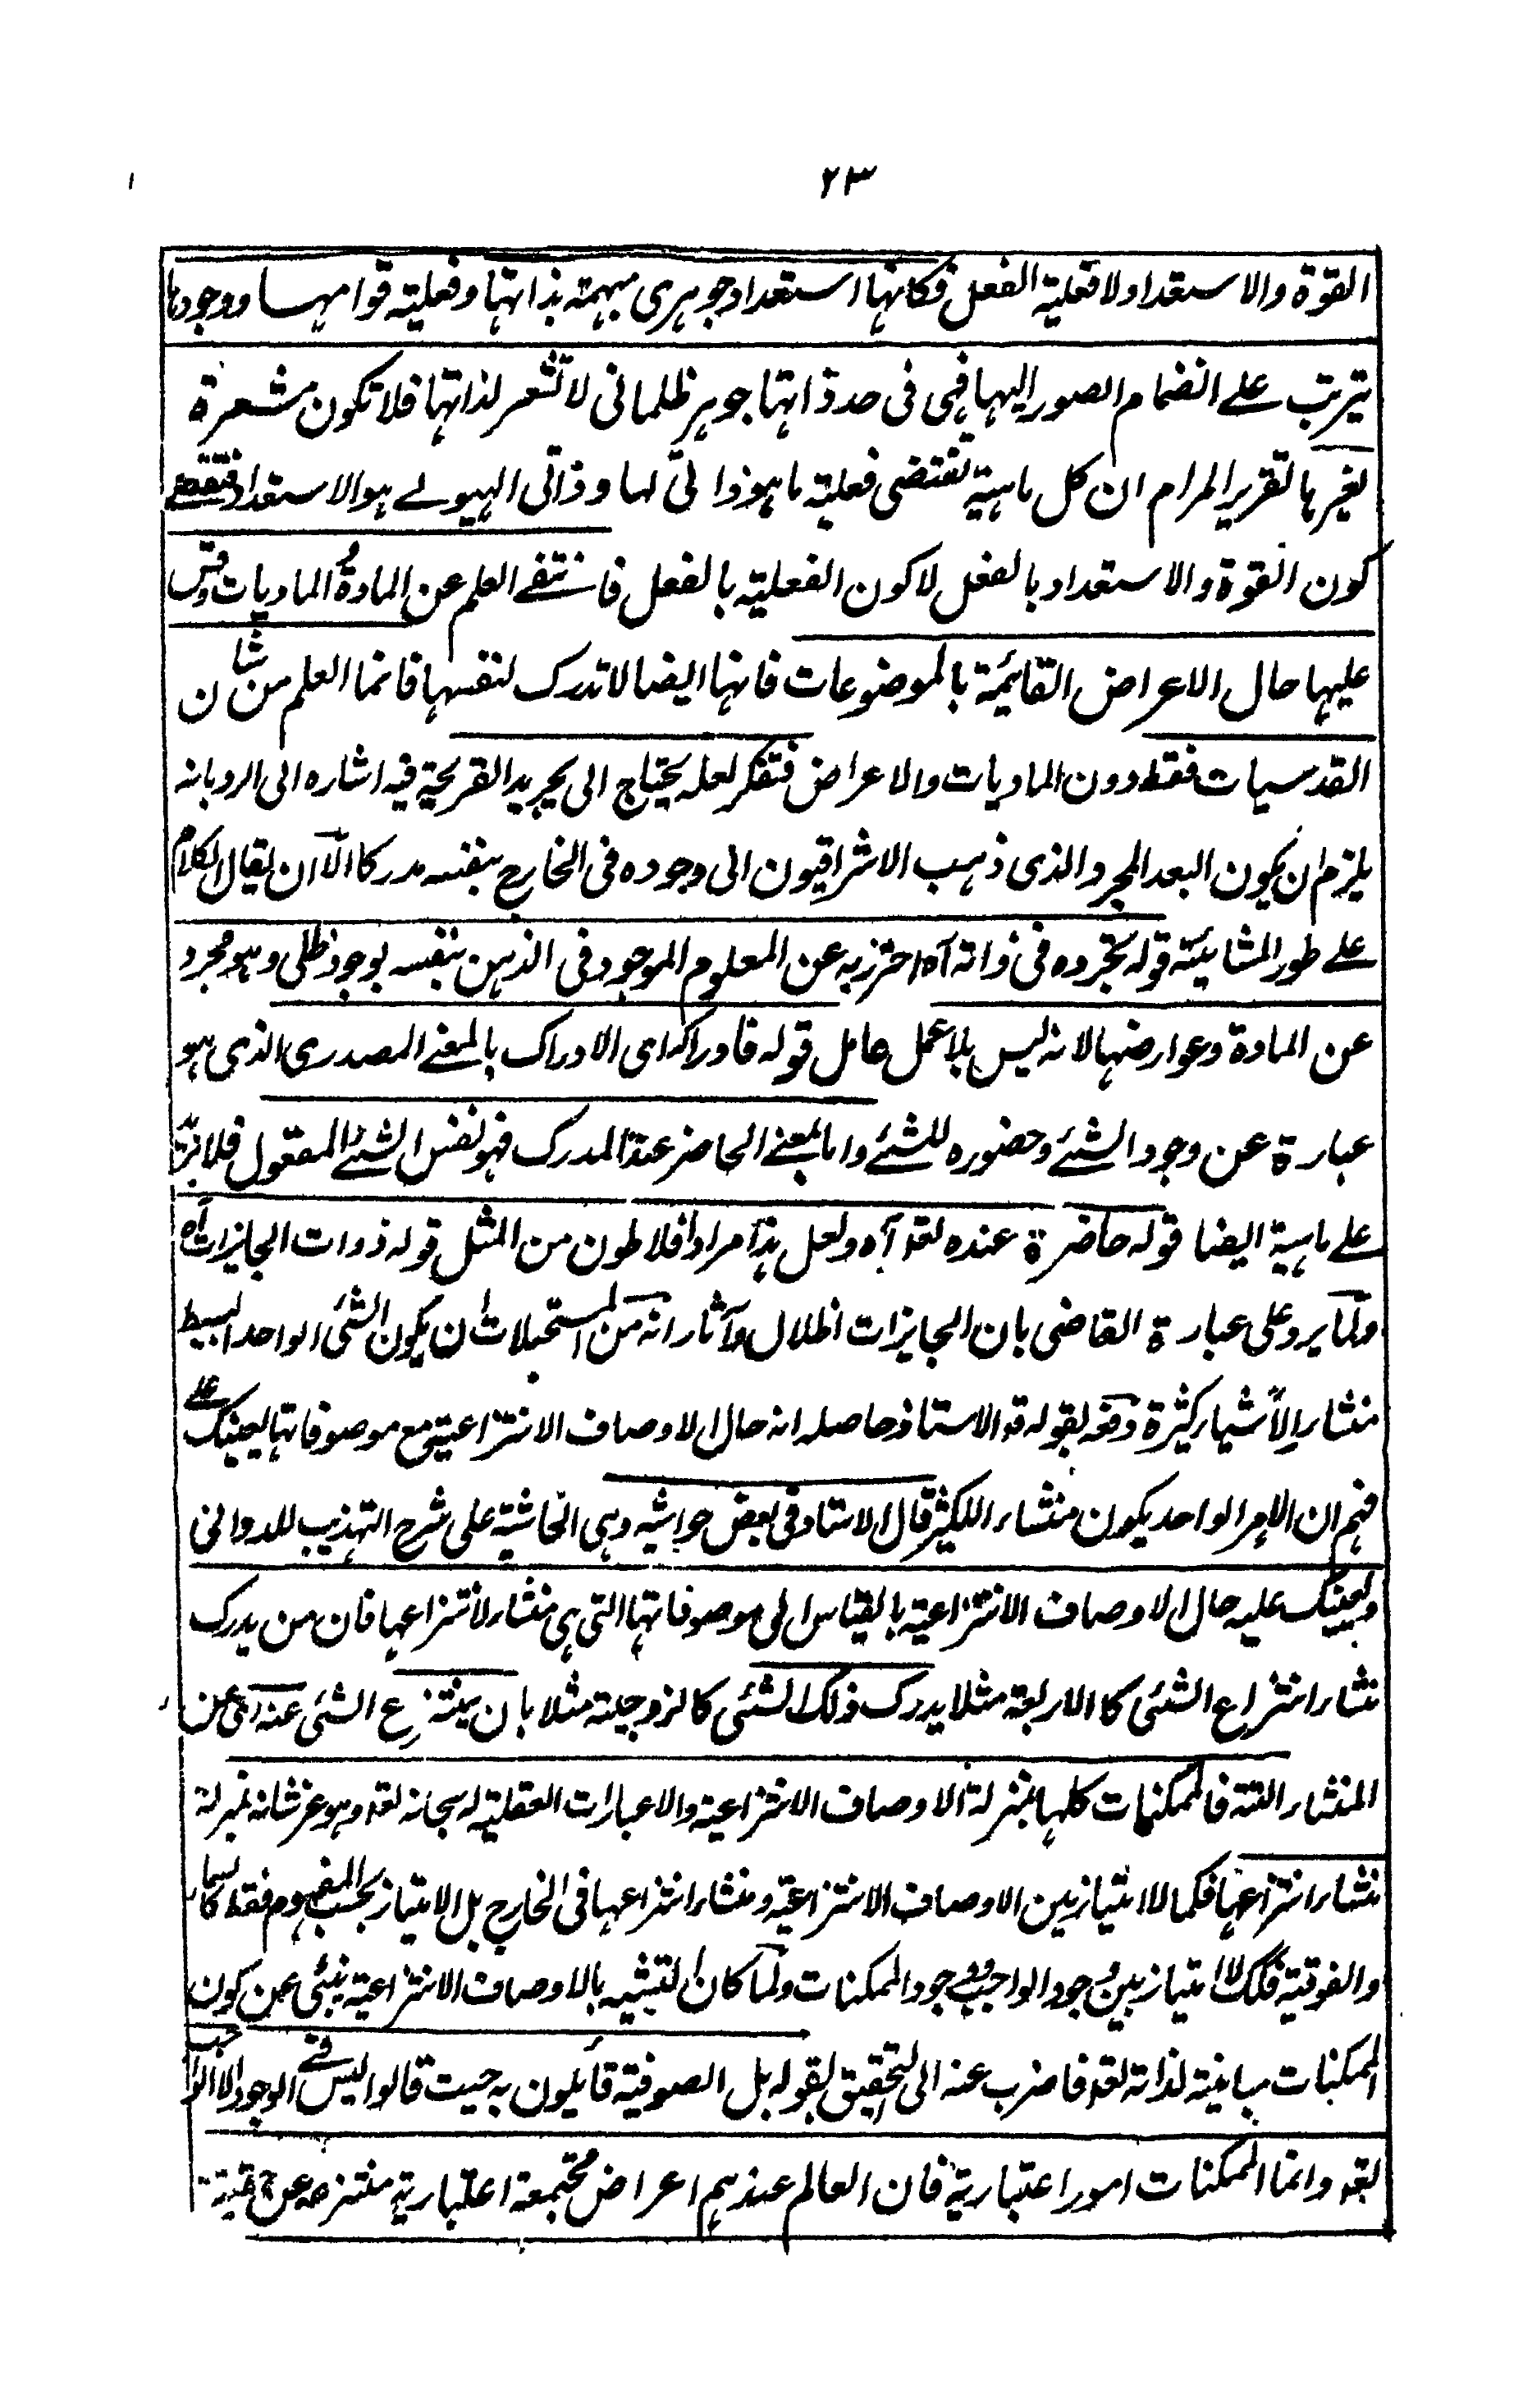 ٢٣
القوة والاستعداد ولا فعلية الفعل فكانها استعداد جوهرى مبهمة بذاتها وفعلية قوامها ووجودها
يترتب على انضمام الصور اليها فهى فى حد ذاتها جوهر ظلمانى لا تشعر لذاتها فلا تكون مشعرة
لغيرها تقرير المرام ان كل ماهية تقتضى فعلية ما هو ذاتى لها وذاتى الهيولے هو الاستعداد فتقتضے
كون القوة والاستعداد بالفعل لا كون الفعلية بالفعل فانتفے العلم عن المادة والماديات وقس
عليها حال الاعراض القائمة بالموضوعات فانها ايضا لا تدرك لنفسها فانما العلم من شان
القدسيات فقط دون الماديات والاعراض فتفكر لعله يحتاج الى تجريد القريحة فيه اشاره الى الرد بانه
يلزم ان يكون البعد المجرد الذى ذهب الاشراقيون الى وجوده فى الخارج بنفسه مدركا الا ان يقال الكلام
علے طور المشائية قوله بتجرده فى ذاته آه احترز به عن المعلوم الموجود فى الذهن بنفسه بوجود ظلى وهو مجرد
عن المادة وعوارضها لانه ليس بلا عمل عامل قوله فادراكه اى الادراك بالمعنے المصدرى الذى هو
عبارة عن وجود الشئے وحضوره للشئے واما بمعنے الحاضر عند المدرك فهو نفس الشئے المعقول فلا يزيد
علے ماهية ايضا قوله حاضرة عنده تعه آه ولعل هذا مراد افلاطون من المثل قوله ذوات الجايزات آه
ولما يرد على عبارة القاضى بان الجايزات اظلال وآثار انه من المستحيلات ان يكون الشئ الواحد البسيط
منشاء لاشياء كثيرة دفعه بقوله قد الاستاذ حاصله انه حال الاوصاف الانتزاعية مع موصوفاتها يعينك علے
فهم ان الامر الواحد يكون منشاء للكثير قال الاستاد فى بعض حواشيه وهى الحاشية على شرح التهذيب للدوانى
ويعينك عليه حال الاوصاف الانتزاعية بالقياس الى موصوفاتها التى هى منشاء لانتزاعها فان من يدرك
منشاء انتزاع الشئى كالاربعة مثلا يدرك ذلك الشئى كالزوجية مثلا بان ينتزع الشئى عنه اى عن
المنشاء البتة فالممكنات كلها بمنزلة الاوصاف الانتزاعية والاعبارات العقلية له سبحانه تعه وهو عز شانه بمنزلة
منشاء انتزاعها فكما لا امتياز بين الاوصاف الانتزاعية ومنشاء انتزاعها فى الخارج بل الامتياز بحسب المفهوم فقط كالسماء
والفوقية فكك لا امتياز بين وجود الواجب ووجود الممكنات ولما كان التشبيه بالاوصاف الانتزاعية ينبئى عن كون
الممكنات مباينة لذاته تعه فاضرب عنه الى التحقيق بقوله بل الصوفية قائلون به حيث قالوا ليس فے الوجود الا الواجب
تعه وانما الممكنات امور اعتبارية فان العالم عندهم اعراض مجتمعة اعتبارية منتزعة عن حقيقة